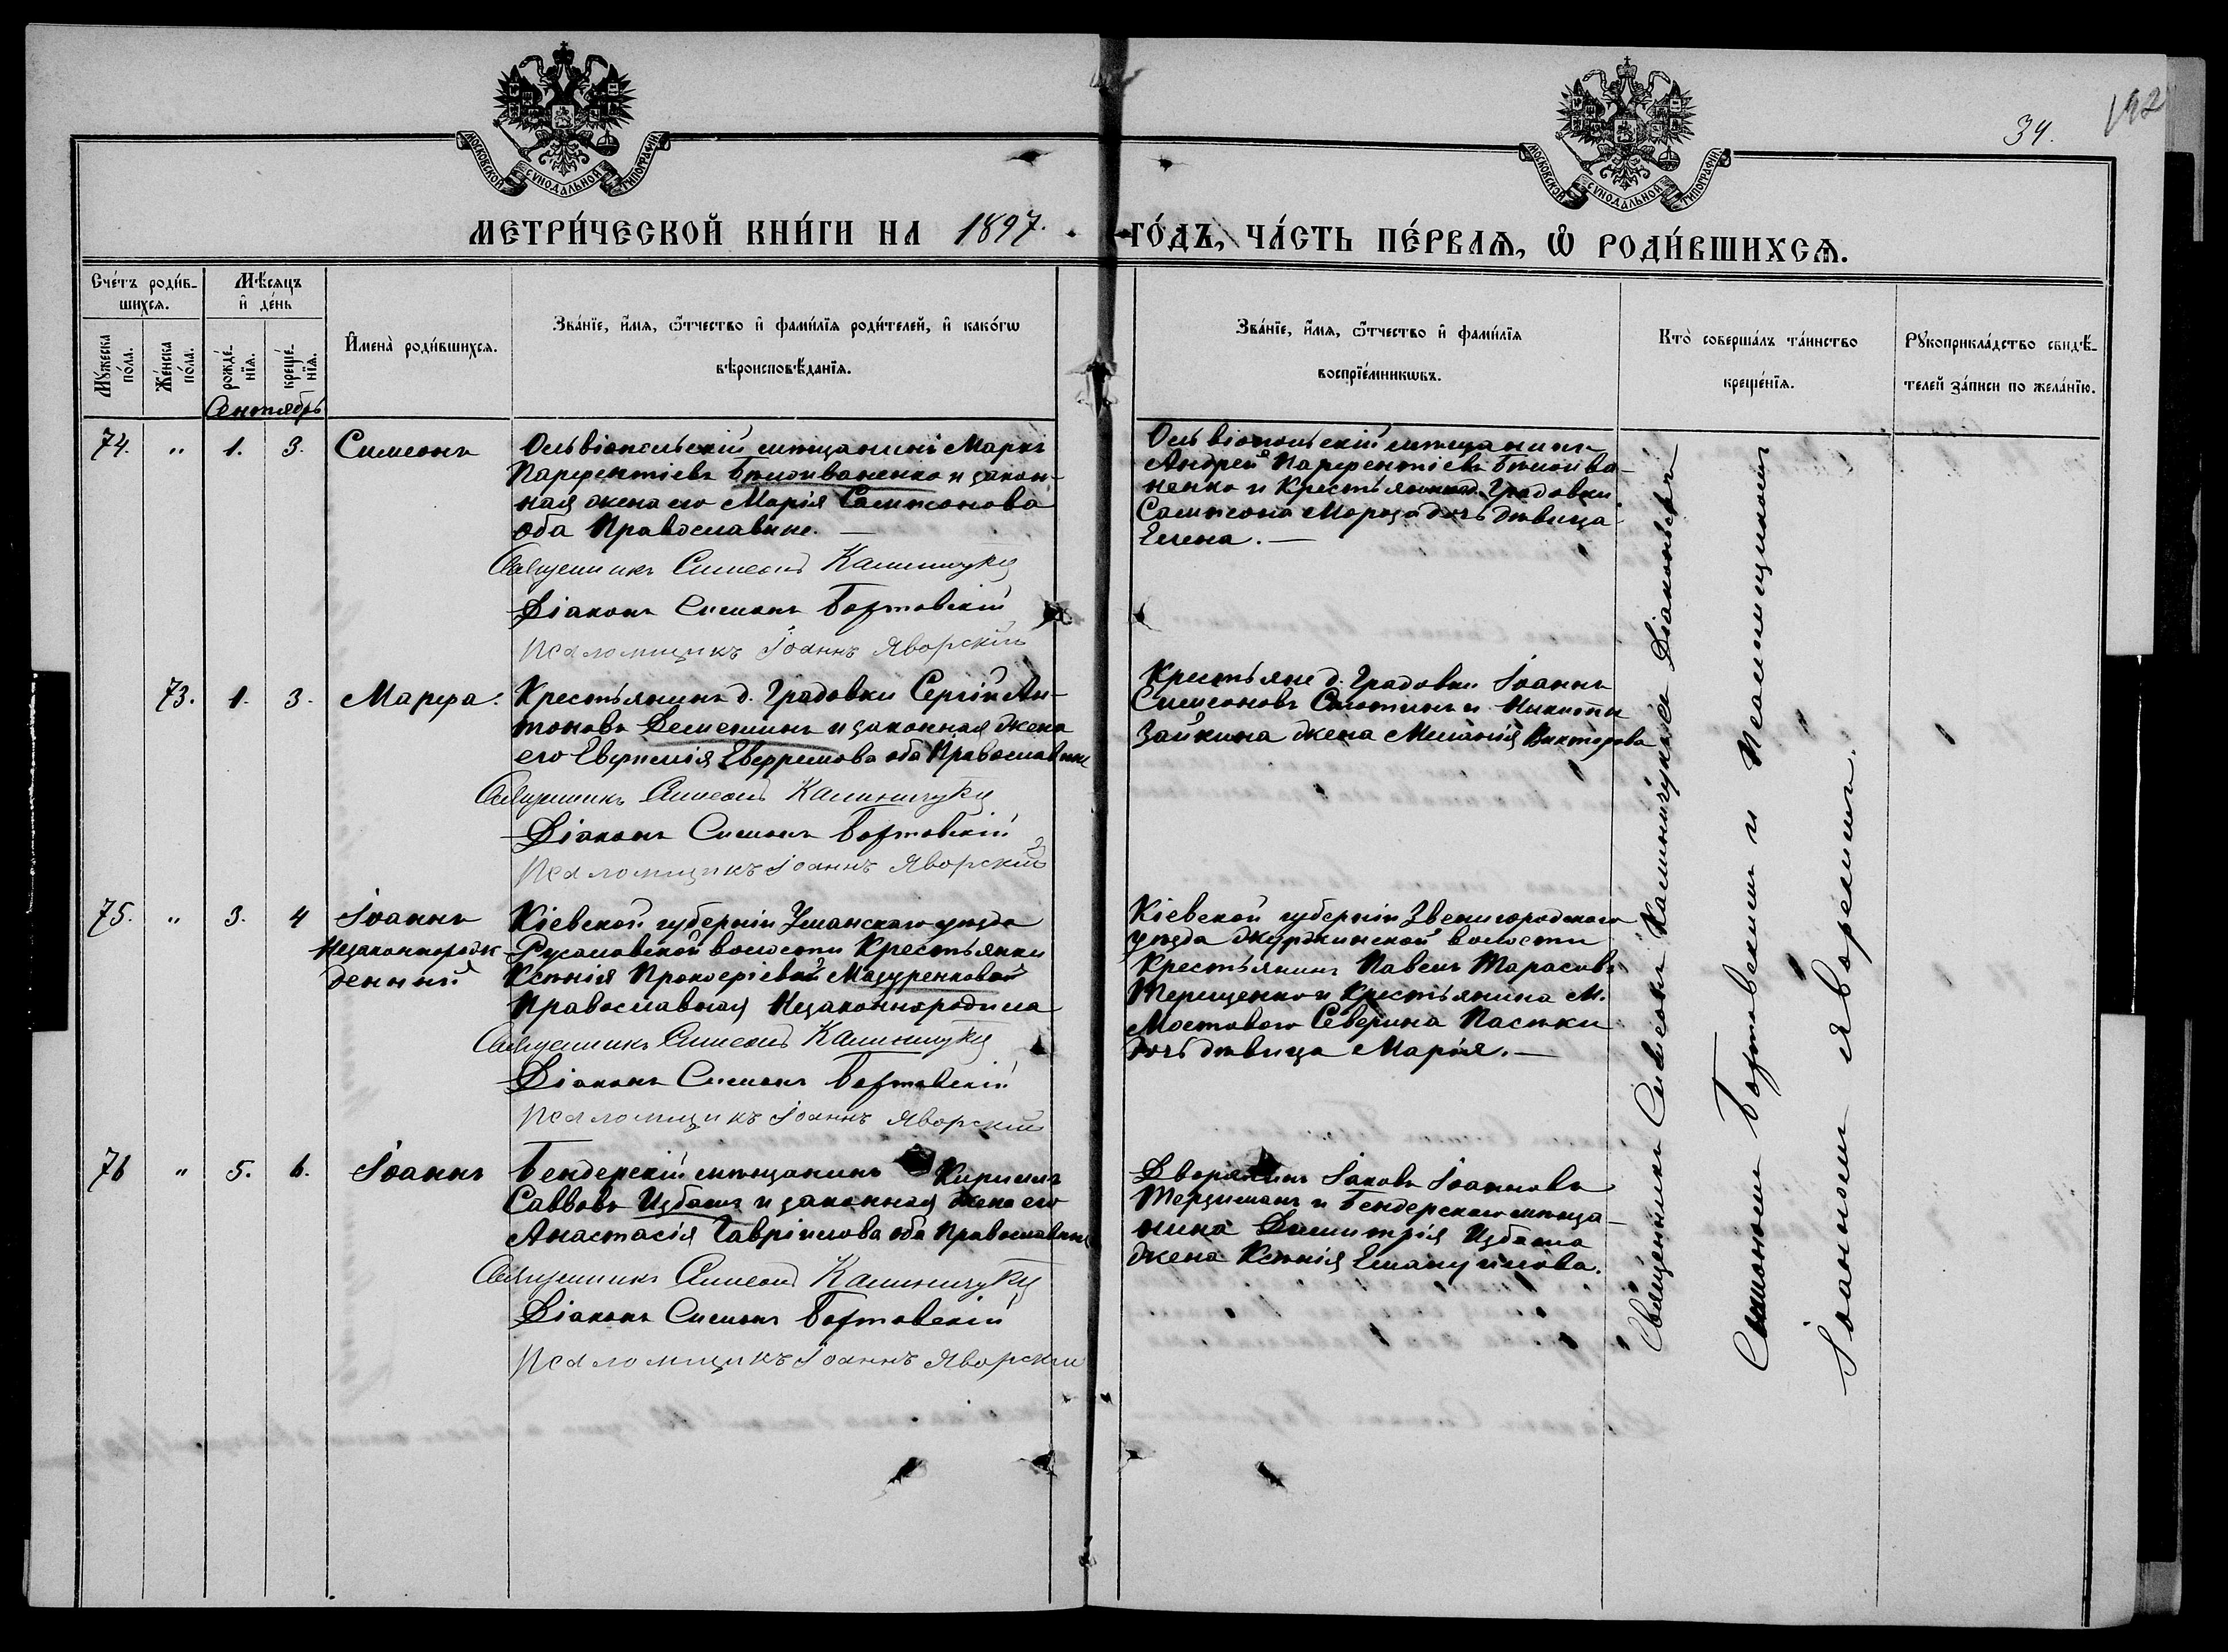 МОСКОВСКОЙ СѴНОДАЛЬНОЙ ТИПОГРАФІИ
МОСКОВСКОЙ СѴНОДАЛЬНОЙ ТИПОГРАФІИ
34.
192
МЕТРИ́ЧЕСКОЙ КНИ́ГИ НА 1897.
ГО́ДЪ, ЧА́СТЬ ПЕ́РВАѦ, Ѡ҆ РОДИ́ВШИХСѦ.
Сче́тъ роди́в-
шихсѧ.
Мꙋ́жеска по́ла.
Же́нска по́ла.
Мѣ́сяцъ
и҆ де́нь
рожде́-нїѧ.
креще́-нїѧ.
Сентябрь
И҆мена̀ роди́вшихсѧ.
Зва́нїе, и҆́мѧ, ѻ҆́тчество и҆ фами́лїѧ роди́телей, и҆ како́гѡ
вѣроисповѣ́данїѧ.
Зва́нїе, и҆́мѧ, ѻ҆́тчество и҆ фами́лїѧ
воспрїе́мникѡвъ.
Кто̀ соверша́лъ та́инство
креще́нїѧ.
Рꙋкоприкла́дство свидѣ́-
телей за́писи по жела́нїю.
74. " 1. 3. Симеонъ
Ольвіопольскій мѣщанинъ Маркъ
Парфентіевъ Бѣлоиваненко и закон-
ная жена его Марія Сампсонова
оба Православные.
Священникъ Симеонъ Калиничукъ
Діаконъ Симонъ Бортовскій
Псаломщикъ Іоаннъ Яворскій
Ольвіопольскій мѣщанинъ
Андрей Парфентіевъ Бѣлоива-
ненко и Крестьянина д. Градовки
Сампсона Мороза дочь дѣвица
Елена.
73. 1. 3. Марфа.
Крестьянинъ д. Градовки Сергій Ан-
тоновъ Деменшинъ и законная жена
его Евгенія Евфремова оба Православные
Священникъ Симеонъ Калиничукъ
Діаконъ Симонъ Бортовскій
Псаломщикъ Іоаннъ Яворскій
Крестьяне д. Градовки Іоаннъ
Симеоновъ и Никиты
Зайкина жена Меланія Викторова
75. " 3. 4 Іоаннъ
Незаконнорож-
денный
Кіевской губерніи Уманскаго уѣзда
Русаловской волости Крестьянки
Ксенія Прокофіевой Мазуренковой
Православная Незаконнородила
Священникъ Симеонъ Калиничукъ
Діаконъ Симонъ Бортовскій
Псаломщикъ Іоаннъ Яворскій
Кіевской губерніи Звенигородскаго
уѣзда волости
Крестьянинъ Павелъ Тарасовъ
Терещенко и Крестьянина м.
Мостового Северина Пастки
дочь дѣвица Марія.
76 " 5. 6. Іоаннъ
Бендерскій мѣщанинъ Кириллъ
Саввовъ Избашъ и законная жена его
Анастасія Гавріилова оба Православные
Священникъ Симеонъ Калиничукъ
Діаконъ Симонъ Бортовскій
Псаломщикъ Іоаннъ Яворскій
Дворянинъ Іаковъ Іоанновъ
и Бендерскаго мѣща-
нина Димитрія Избаша
жена Ксенія Емануилова.
Священникъ Симеонъ Калиничукъ съ Діакономъ
Симономъ Бортовскимъ и Псаломщикомъ
Іоанномъ Яворскимъ.